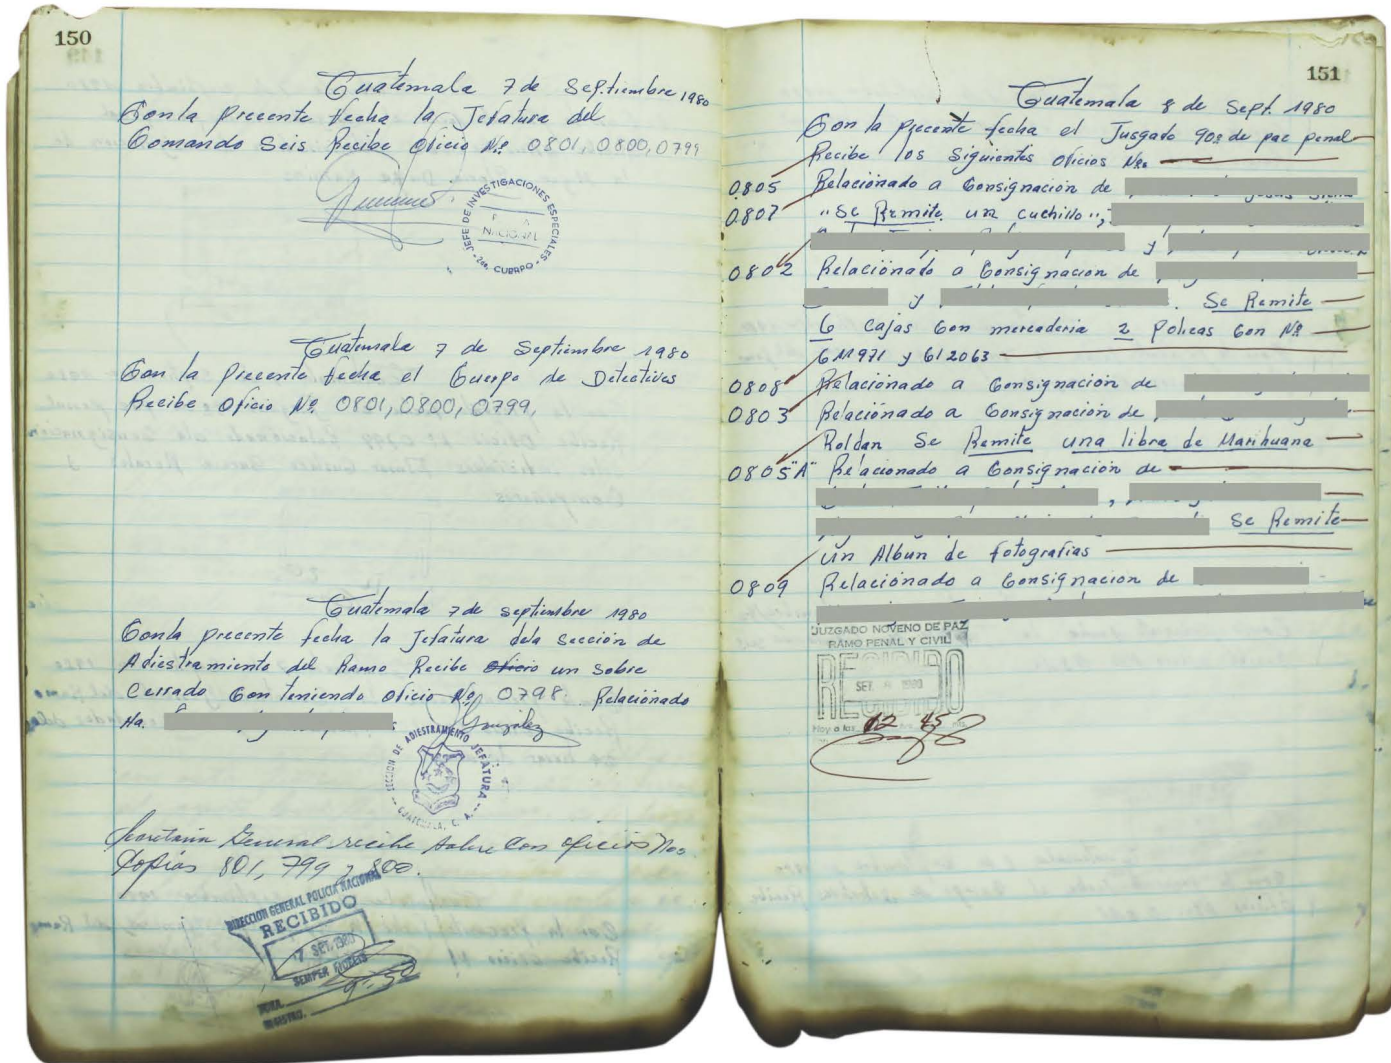 150
Guatemala 7 de Septiembre 1980
Con la precente fecha la Jefatura del
Comando Seis Recibe Oficio Nº 0801, 0800, 0799
JEFE DE INVESTIGACIONES ESPECIALES
NACIONAL
2do. CUERPO
Guatemala 7 de Septiembre 1980
Con la precente fecha el Cuerpo de Detectives
Recibe Oficio Nº 0801, 0800, 0799,
Guatemala 7 de septiembre 1980
Con la precente fecha la Jefatura dela Sección de
Adiestramiento del Ramo Recibe Oficio un Sobre
Cerrado Conteniendo Oficio Nº 0798. Relacionado
Ha.
González
SECCION DE ADIESTRAMIENTO JEFATURA
GUATEMALA, C. A.
Secretaria General recibe sobre con oficios Nos
Copias 801, 799 y 800.
DIRECCION GENERAL POLICIA NACIONAL
RECIBIDO
7 SET. 1980
SEMPER FIDELIS
HORA. 9:30
REGISTRO.
151
Guatemala 8 de Sept. 1980
Con la precente fecha el Jusgado 9o. de paz penal
Recibe los Siguientes oficios Nos
0805 Relacionado a Consignación de
0807 "Se Remite un cuchillo",
y
0802 Relacionado a Consignación de
y . Se Remite
6 Cajas Con mercaderia 2 Polisas Con Nº
611971 y 612063
0808 Relacionado a Consignación de
0803 Relacionado a Consignación de
Roldan Se Remite una libra de Marihuana
0805 "A" Relacionado a Consignación de
,
Se Remite
un Albun de fotografias
0809 Relacionado a Consignación de
JUZGADO NOVENO DE PAZ
RAMO PENAL Y CIVIL
RECIBIDO
SET. 1980
Hoy a las 12 45